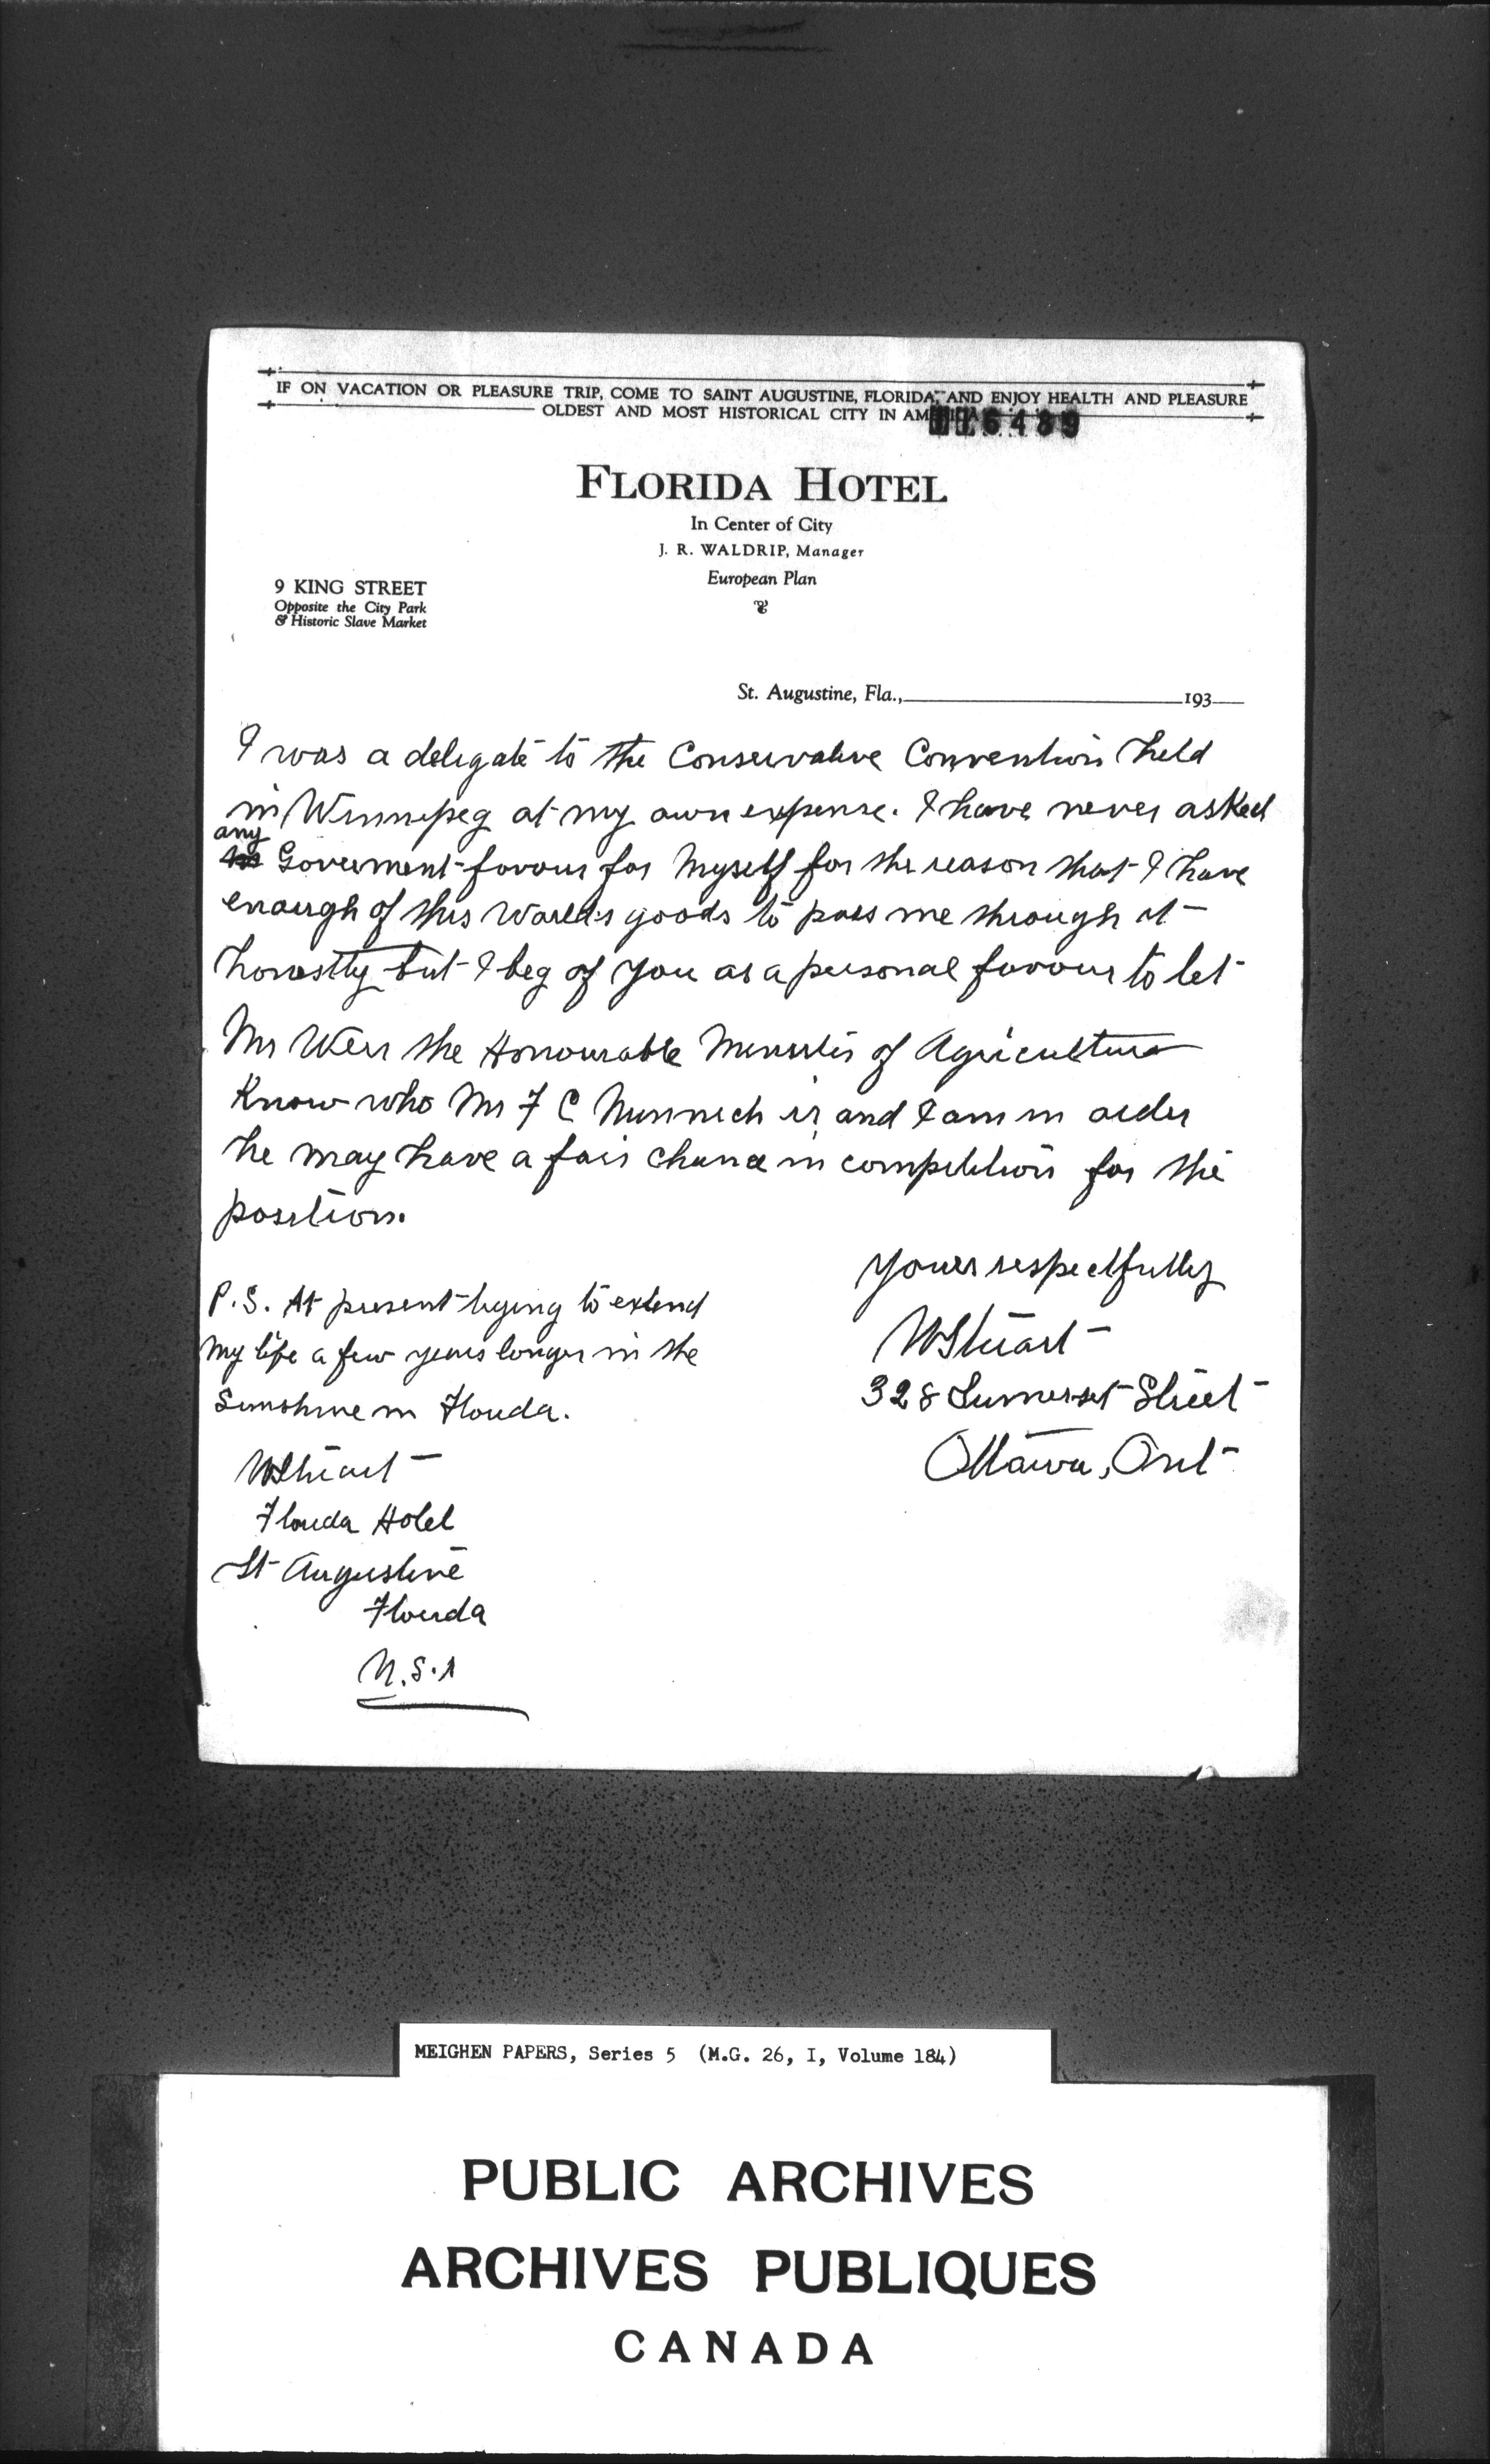 IF ON VACATION OR PLEASURE TRIP, COME TO SAINT AUGUSTINE, FLORIDA, AND ENJOY HEALTH AND PLEASURE
OLDEST AND MOST HISTORICAL CITY IN AMERICA
116489
FLORIDA HOTEL
In Center of City
J. R. WALDRIP, Manager
European Plan
9 KING STREET
Opposite the City Park
& Historic Slave Market
St. Augustine, Fla., 193
I was a delegate to the Conservative Convention held
in Winnipeg at my own expense. I have never asked
any
Goverment favour for Myself for the reason that I have
enough of this World's goods to pass me through it
honestly but I beg of you as a personal favour to let
Mr Weir the Honourable Minister of Agriculture
Know who Mr F C Nunnick is and I am in order
he may have a fair chance in competition for the
position.
Yours respectfully
WStuart
328 Sumerset Street
Ottawa, Ont
P.S. At present trying to extend
My life a few years longer in the
Sunshine in Florida.
WStuart
Florida Hotel
St Augustine
Florida
U.S.A
MEIGHEN PAPERS, Series 5 (M.G. 26, I, Volume 184)
PUBLIC ARCHIVES
ARCHIVES PUBLIQUES
CANADA